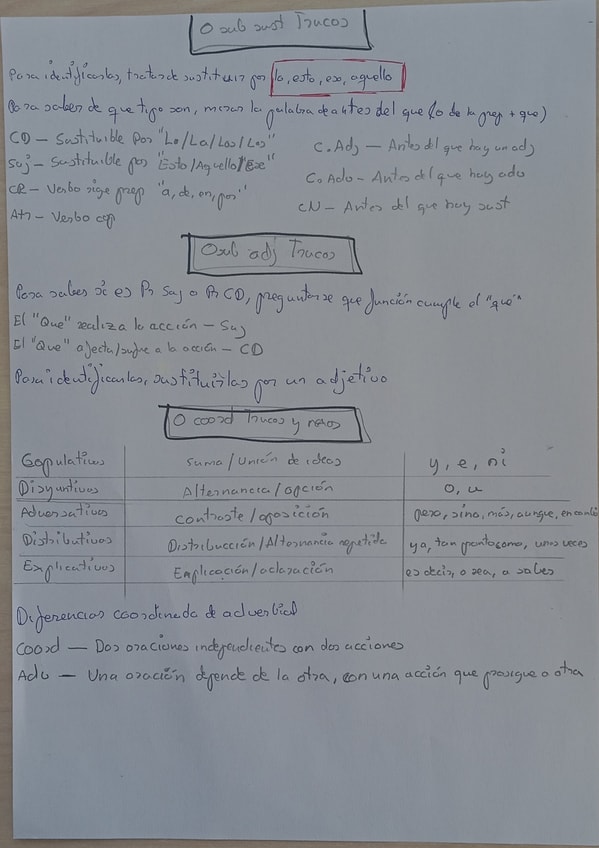 O sub sust Trucos
Para identificarlas, tratar de sustituir por lo, esto, eso, aquello
Para saber de que tipo son, mirar la palabra de antes del que (o de la prep + que)
CD - Sustituible por "Lo/La/Los/Las"
Suj - Sustituible por "Esto/Aquello/Ese"
CR - Verbo rige prep "a, de, en, por"
Atr - Verbo cop
C. Adj - Antes del que hay un adj
C. Adv - Antes del que hay adv
CN - Antes del que hay sust
Osub adj Trucos
Para saber si es Pr Suj o Pr CD, preguntarse que función cumple el "que"
El "Que" realiza la acción - Suj
El "Que" afecta/sufre a la acción - CD
Para identificarlas, sustituirlas por un adjetivo
O coord Trucos y nexos
Copulativas Suma/Unión de ideas y, e, ni
Disyuntivas Alternancia/opción o, u
Adversativas contraste/oposición pero, sino, más, aunque, en cambio
Distributivas Distribucción/Alternancia repetida ya, tan pronto como, unas veces
Explicativas Explicación/aclaración es decir, o sea, a saber
Diferencias coordinada de adverbial
Coord - Dos oraciones independientes con dos acciones
Adv - Una oración depende de la otra, con una acción que prosigue a otra